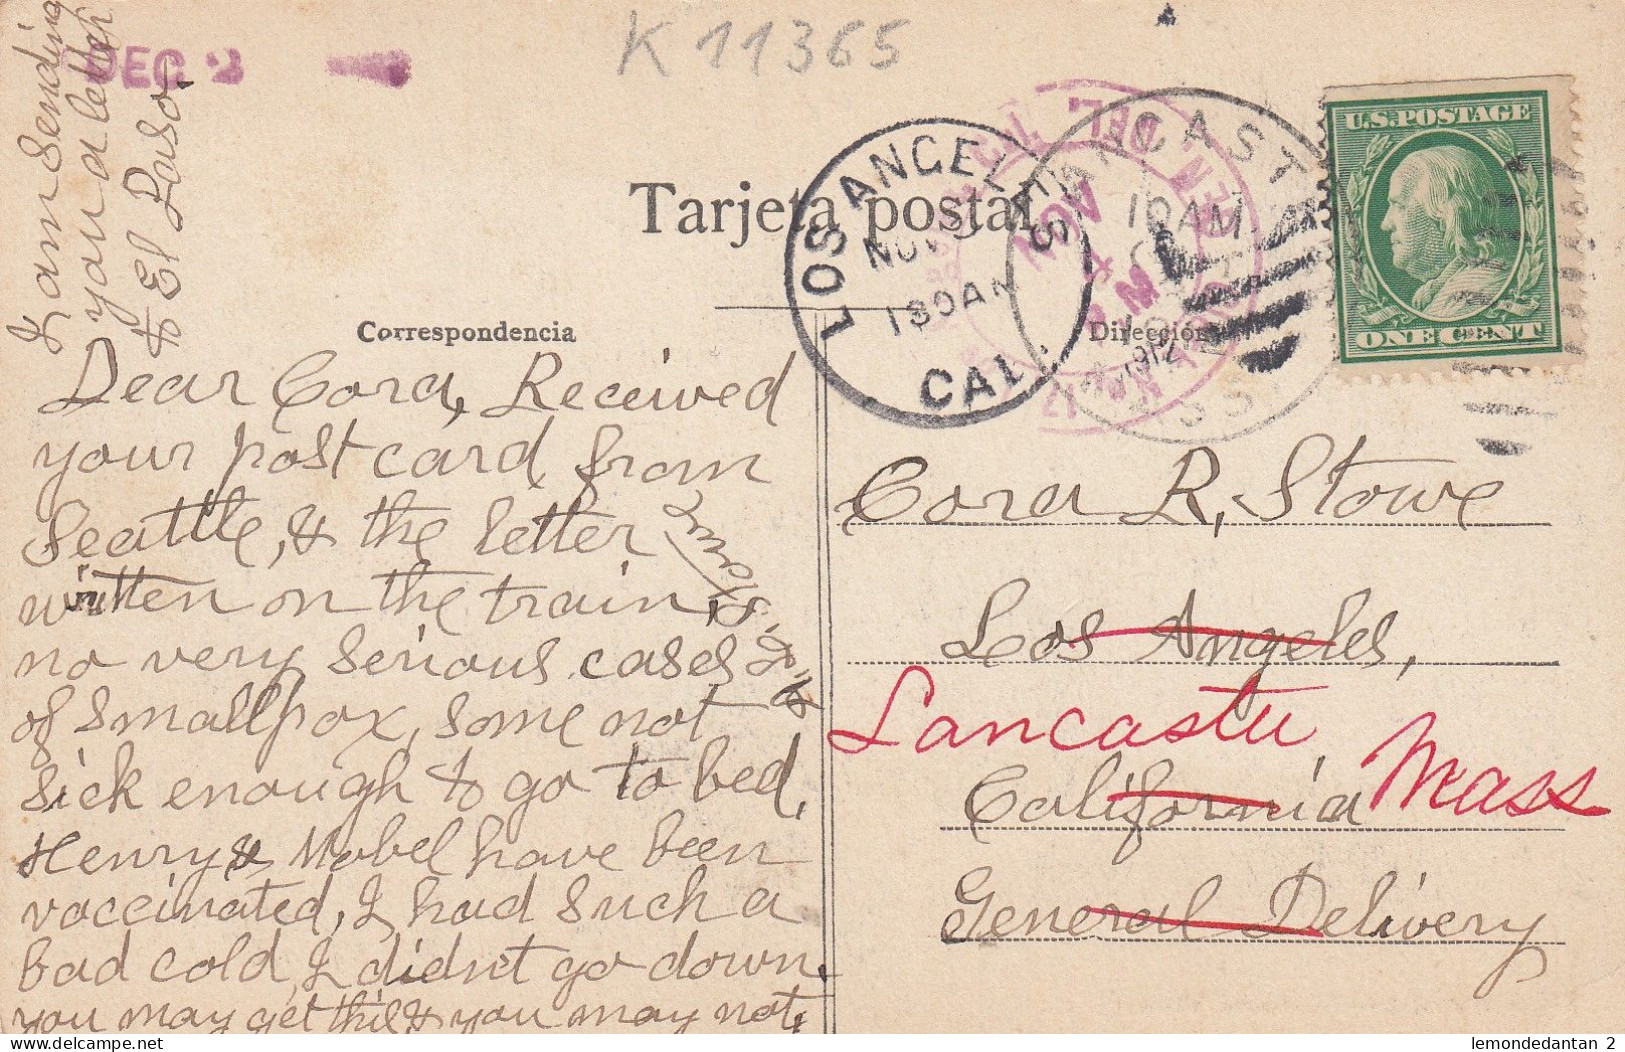 K 11365
DEC 2
I am sending
you a letter
to El Paso.
Tarjeta postal
Correspondencia
Dirección
LOS ANGELES
NOV
130AM
CAL.
LANCASTER
10AM
1912
MASS.
GEN. DEL.
U.S. POSTAGE
ONE CENT
Dear Cora, Received
your postcard from
Seattle, & the letter
written on the train,
no very serious cases
of smallpox, some not
sick enough to go to bed,
Henry & Mabel have been
vaccinated, I had such a
bad cold, I didn't go down.
you may get this & you may not,
Cora R, Stowe
Los Angeles,
Lancaster
California Mass
General Delivery
www.delcampe.net
lemondedantan 2